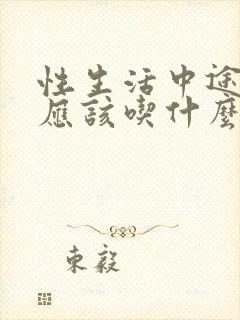 性生活中途
應該喫什麼
東毅